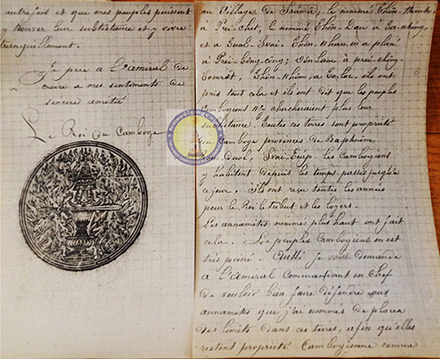 autrefois et que mes peuples puissent
y trouver leur subsistance et y vivre
tranquillement.
Je prie à l'Amiral de
croire a mes sentiments de
sincère amitié
Le Roi du Cambodge
au Village de
à Préi Chet, le nommé Thôn Dau à
et a Suol. Svai. Thôn. Nhan. en a placé
à Préi
pris tout cela et ils ont dit que les peuples
Cambogiens n'y chercheraient plus leur
subsistance. Toutes ces terres sont propriété
du Cambodge provinces de Baphnom,
Svai Les Cambogiens
y habitent depuis les temps passés jusqu'à
ce jour. ils ont reçu toutes les années
pour le Roi le tribut et les loyers.
Les annamites nommés plus haut ont fait
cela. Le peuple Cambogien en est
très peiné. Aussi je vous demande
a l'Amiral Commandant en Chef
de vouloir bien faire défendre aux
annamites que j'ai nommés de placer
des limites dans ces terres, afin qu'elles
restent propriété Cambogienne comme